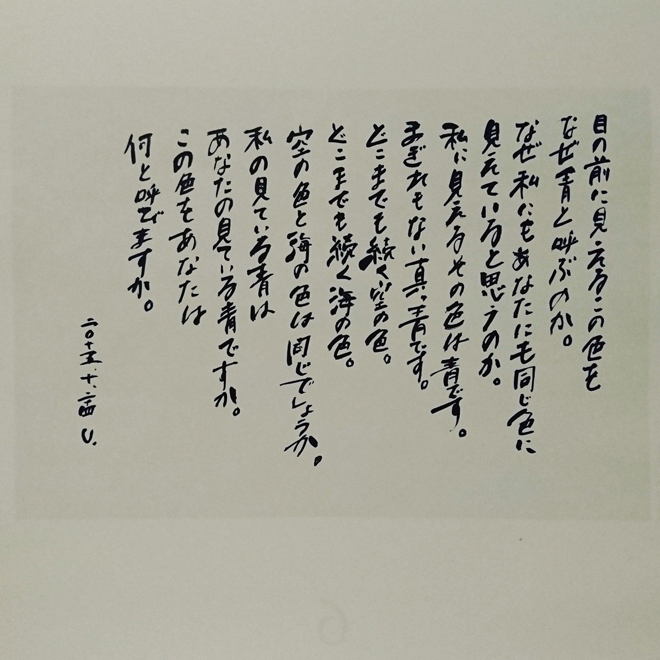 目の前に見えるこの色を
なぜ青と呼ぶのか。
なぜ私にもあなたにも同じ色に
見えていると思うのか。
私に見えるその色は青です。
まぎれもない真っ青です。
どこまでも続く空の色。
どこまでも続く海の色。
空の色と海の色は同じでしょうか。
私の見ている青は
あなたの見ている青ですか。
この色をあなたは
何と呼びますか。
二〇十五、十、